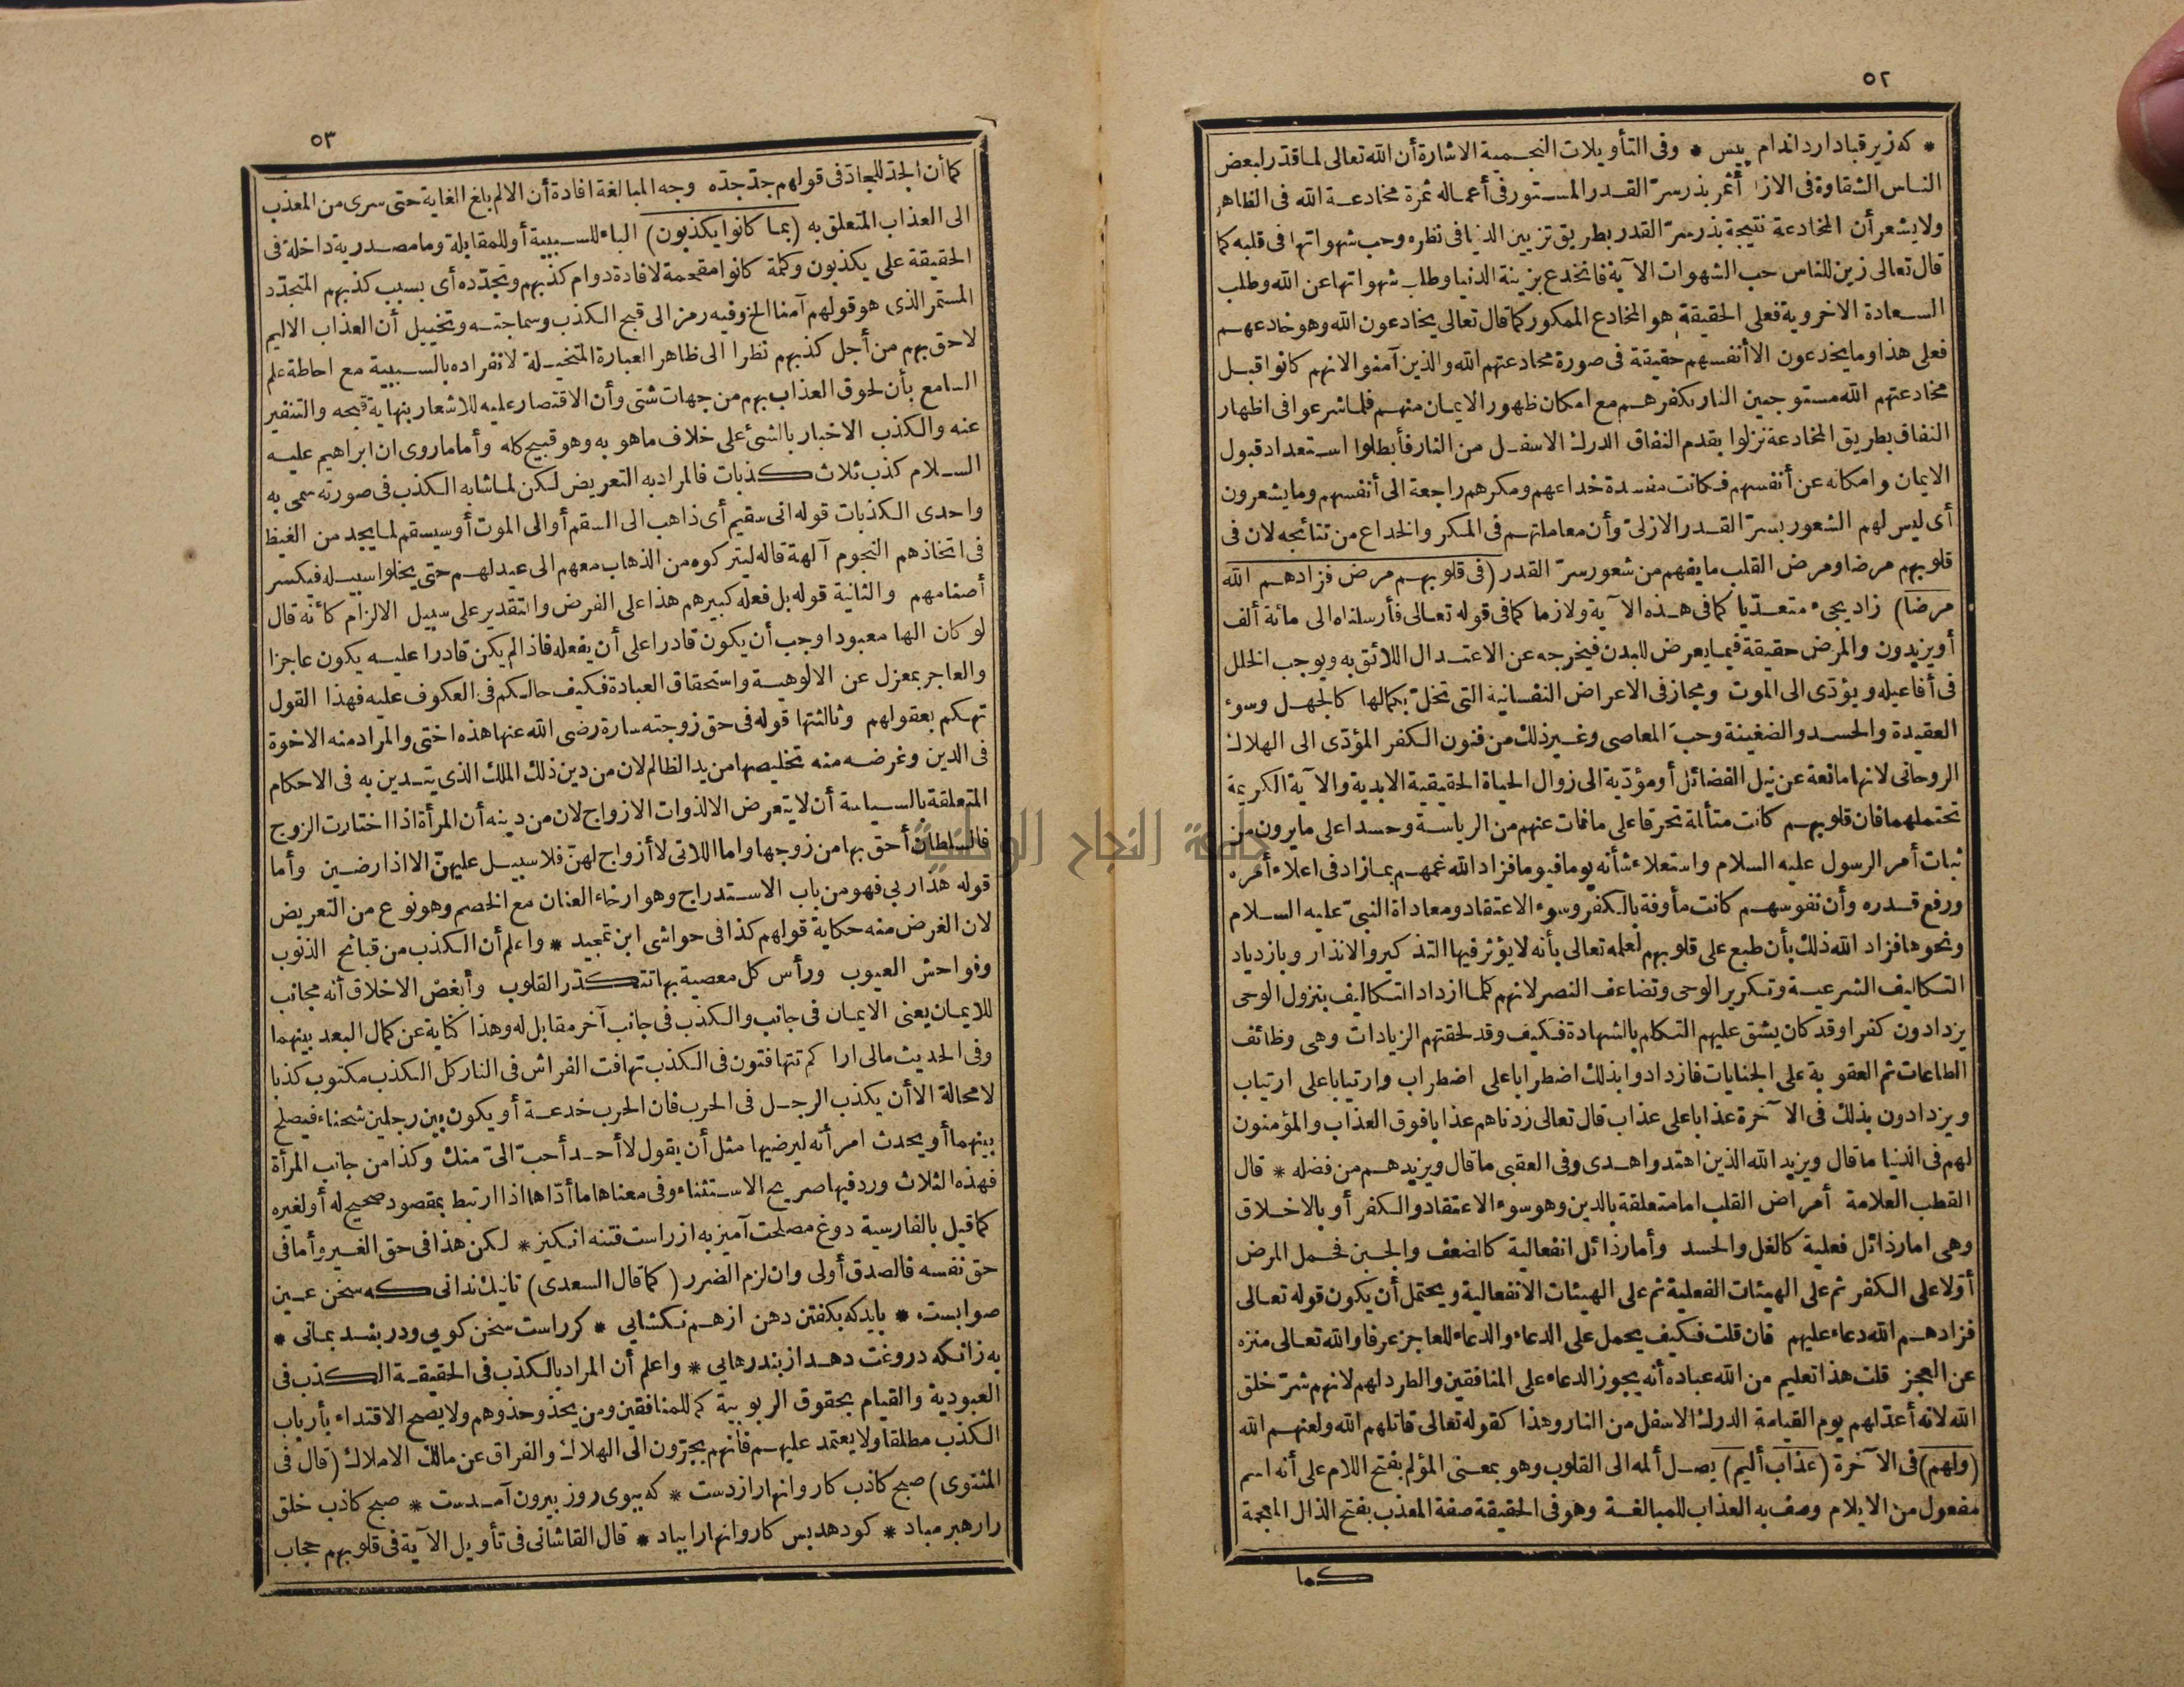 ٥٢
* كه زير قبا دارد اندام پيس * وفى التأويلات النجمية الاشارة أن الله تعالى لما قدر لبعض
الناس الشقاوة فى الازل أثمر بذر سر القدر المستور فى أعماله ثمرة مخادعة الله فى الظاهر
ولا يشعر أن المخادعة نتيجة بذر سر القدر بطريق تزيين الدنيا فى نظره وحب شهواتها فى قلبه كما
قال تعالى زين للناس حب الشهوات الآية فانخدع بزينة الدنيا وطلب شهواتها عن الله وطلب
السعادة الاخروية فعلى الحقيقة هو المخادع الممكور كما قال تعالى يخادعون الله وهو خادعهم
فعلى هذا وما يخدعون الا أنفسهم حقيقة فى صورة مخادعتهم الله والذين آمنوا لانهم كانوا قبل
مخادعتهم الله مستوجبين النار بكفرهم مع امكان ظهور الايمان منهم فلما شرعوا فى اظهار
النفاق بطريق المخادعة نزلوا بقدم النفاق الدرك الاسفل من النار فأبطلوا استعداد قبول
الايمان وامكانه عن أنفسهم فكانت مفسدة خداعهم ومكرهم راجعة الى أنفسهم وما يشعرون
أى ليس لهم الشعور بسر القدر الازلى وأن معاملتهم فى المكر والخداع من نتائجه لان فى
قلوبهم مرضا ومرض القلب ما يفهم من شعور سر القدر (فى قلوبهم مرض فزادهم الله
مرضا) زاد يجىء متعديا كما فى هذه الآية ولازما كما فى قوله تعالى فأرسلناه الى مائة ألف
أو يزيدون والمرض حقيقة فيما يعرض للبدن فيخرجه عن الاعتدال اللائق به ويوجب الخلل
فى أفاعيله ويؤدى الى الموت ومجاز فى الاعراض النفسانية التى تخل بكمالها كالجهل وسوء
العقيدة والحسد والضغينة وحب المعاصى وغير ذلك من فنون الكفر المؤدى الى الهلاك
الروحانى لانها مانعة عن نيل الفضائل أو مؤدية الى زوال الحياة الحقيقية الابدية والآية الكريمة
تحتملهما فان قلوبهم كانت متألمة تحرقا على ما فات عنهم من الرياسة وحسدا على ما يرون من
ثبات أمر الرسول عليه السلام واستعلاء شأنه يوما فيوما فزاد الله غمهم بما زاد فى اعلاء أمره
ورفع قدره وأن نفوسهم كانت مأوفة بالكفر وسوء الاعتقاد ومعاداة النبى عليه السلام
ونحوها فزاد الله ذلك بأن طبع على قلوبهم لعلمه تعالى بأنه لا يؤثر فيها التذكير والانذار وبازدياد
التكاليف الشرعية وتكرير الوحى وتضاعف النصر لانهم كلما ازداد التكاليف بنزول الوحى
يزدادون كفرا وقد كان يشق عليهم التكلم بالشهادة فكيف وقد لحقتهم الزيادات وهى وظائف
الطاعات ثم العقوبة على الجنايات فازدادوا بذلك اضطرابا على اضطراب وارتيابا على ارتياب
ويزدادون بذلك فى الآخرة عذابا على عذاب قال تعالى زدناهم عذابا فوق العذاب والمؤمنون
لهم فى الدنيا ما قال ويزيد الله الذين اهتدوا هدى وفى العقبى ما قال ويزيدهم من فضله * قال
القطب العلامة أمراض القلب اما متعلقة بالدين وهو سوء الاعتقاد والكفر أو بالاخلاق
وهى اما رذائل فعلية كالغل والحسد وأما رذائل انفعالية كالضعف والجبن فحمل المرض
أولا على الكفر ثم على الهيئات الفعلية ثم على الهيئات الانفعالية ويحتمل أن يكون قوله تعالى
فزادهم الله دعاء عليهم فان قلت فكيف يحمل على الدعاء والدعاء للعاجز عرفا والله تعالى منزه
عن العجز قلت هذا تعليم من الله عباده أنه يجوز الدعاء على المنافقين والطرد لهم لانهم شر خلق
الله لانه أعد لهم يوم القيامة الدرك الاسفل من النار وهذا كقوله تعالى قاتلهم الله ولعنهم الله
(ولهم) فى الآخرة (عذاب أليم) يصل ألمه الى القلوب وهو بمعنى المؤلم بفتح اللام على أنه اسم
مفعول من الايلام وصف به العذاب للمبالغة وهو فى الحقيقة صفة المعذب بفتح الذال المعجمة
كما
٥٣
كما أن الجد للجاد فى قولهم جد جده وجه المبالغة افادة أن الالم بلغ الغاية حتى سرى من المعذب
الى العذاب المتعلق به (بما كانوا يكذبون) الباء للسببية أو للمقابلة وما مصدرية داخلة فى
الحقيقة على يكذبون وكلمة كانوا مقحمة لافادة دوام كذبهم وتجدده أى بسبب كذبهم المتجدد
المستمر الذى هو قولهم آمنا الخ وفيه رمز الى قبح الكذب وسماجته وتخييل أن العذاب الاليم
لاحق بهم من أجل كذبهم نظرا الى ظاهر العبارة المتخيلة لانفراده بالسببية مع احاطة علم
السامع بأن لحوق العذاب بهم من جهات شتى وأن الاقتصار عليه للاشعار بنهاية قبحه والتنفير
عنه والكذب الاخبار بالشئ على خلاف ما هو به وهو قبيح كله وأما ما روى ان ابراهيم عليه
السلام كذب ثلاث كذبات فالمراد به التعريض لكن لما شابه الكذب فى صورته سمى به
واحدى الكذبات قوله انى سقيم أى ذاهب الى السقم أو الى الموت أو سيسقم لما يجد من الغيظ
فى اتخاذهم النجوم آلهة قاله ليتركوه من الذهاب معهم الى عيد لهم حتى يخلوا سبيله فيكسر
أصنامهم والثانية قوله بل فعله كبيرهم هذا على الفرض والتقدير على سبيل الالزام كأنه قال
لو كان الها معبودا وجب أن يكون قادرا على أن يفعله فاذا لم يكن قادرا عليه يكون عاجزا
والعاجز بمعزل عن الالوهية واستحقاق العبادة فكيف حالكم فى العكوف عليه فهذا القول
تهكم بعقولهم وثالثتها قوله فى حق زوجته سارة رضى الله عنها هذه اختى والمراد منه الاخوة
فى الدين وغرضه منه تخليصها من يد الظالم لان من دين ذلك الملك الذى يتدين به فى الاحكام
المتعلقة بالسياسة أن لا يتعرض الا لذوات الازواج لان من دينه أن المرأة اذا اختارت الزوج
فالسلطان أحق بها من زوجها واما اللاتى لا أزواج لهن فلا سبيل عليهن الا اذا رضين وأما
قوله هذا ربى فهو من باب الاستدراج وهو ارخاء العنان مع الخصم وهو نوع من التعريض
لان الغرض منه حكاية قولهم كذا فى حواشى ابن تمجيد * واعلم أن الكذب من قبائح الذنوب
وفواحش العيوب ورأس كل معصية بها تتكدر القلوب وأبغض الاخلاق أنه مجانب
للايمان يعنى الايمان فى جانب والكذب فى جانب آخر مقابل له وهذا كناية عن كمال البعد بينهما
وفى الحديث مالى اراكم تتهافتون فى الكذب تهافت الفراش فى النار كل الكذب مكتوب كذبا
لا محالة الا أن يكذب الرجل فى الحرب فان الحرب خدعة أو يكون بين رجلين شحناء فيصلح
بينهما أو يحدث امرأته ليرضيها مثل أن يقول لا أحد أحب الى منك وكذا من جانب المرأة
فهذه الثلاث ورد فيها صريح الاستثناء وفى معناها ما أداها اذا ارتبط بمقصود صحيح له أو لغيره
كما قيل بالفارسية دوغ مصلحت آميز به از راست فتنه انكيز * لكن هذا فى حق الغير وأما فى
حق نفسه فالصدق أولى وان لزم الضرر (كما قال السعدى) تا نيك ندانى كه سخن عين
صوابست * بايد كه بكفتن دهن از هم نكشايى * كر راست سخن كويى ودر بند بمانى *
به زانكه دروغت دهد از بند رهايى * واعلم أن المراد بالكذب فى الحقيقة الكذب فى
العبودية والقيام بحقوق الربوبية كما للمنافقين ومن يحذو حذوهم ولا يصح الاقتداء بأرباب
الكذب مطلقا ولا يعتمد عليهم فانهم يجرون الى الهلاك والفراق عن مالك الاملاك (قال فى
المثنوى) صبح كاذب كاروانها را زدست * كه ببوى روز بيرون آمدست * صبح كاذب خلق
را رهبر مباد * كو دهد بس كاروانها را بباد * قال القاشانى فى تأويل الآية فى قلوبهم حجاب